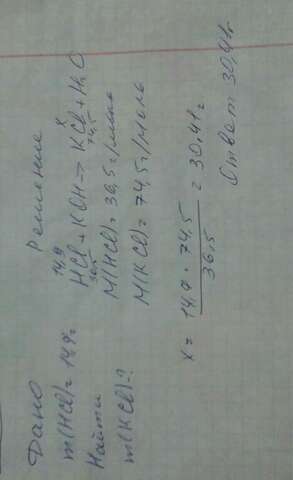 Дано
m(HCl)=14,9г
Найти
m(KCl)-?
Решение
14,9 x
HCl + KOH → KCl + H₂O
36,5 74,5
M(HCl)=36,5г/моль
M(KCl)=74,5г/моль
x = 14,9 · 74,5 / 36,5 = 30,41г
Ответ 30,41г